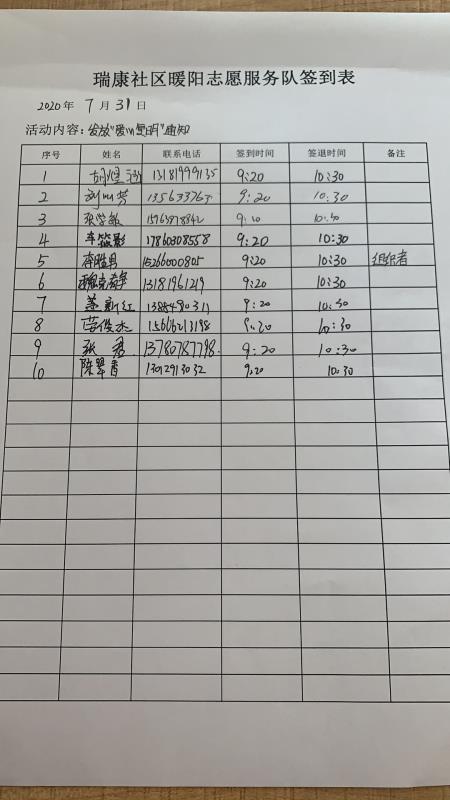 瑞康社区暖阳志愿服务队签到表
2020年 7月31日
活动内容：发放"爱心复明"通知
序号 姓名 联系电话 签到时间 签退时间 备注
1 13181999135 9:20 10:30
2 刘 芳 9:20 10:30
3 张学敏 9:20 10:30
4 车筱影 17860308558 9:20 10:30
5 李胜男 15266000805 9:20 10:30 组织者
6 13181961219 9:20 10:30
7 姜新红 9:20 10:30
8 15666213198 9:20 10:30
9 张 君 13780787798 9:20 10:30
10 陈翠香 13012913032 9:20 10:30